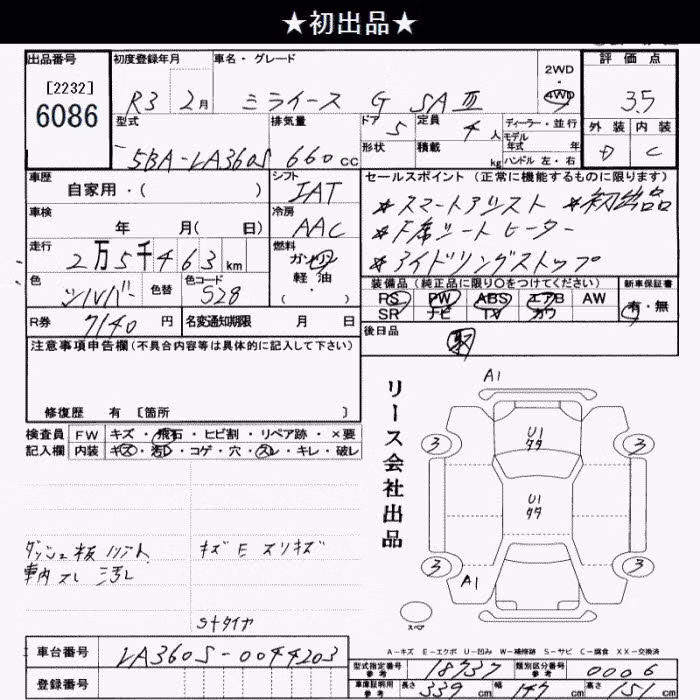 ★初出品★
出品番号 初度登録年月 車名・グレード 2WD 評価点
[2232]
6086
R3 2月 ミライース G SAⅢ 4WD 3.5
型式 排気量 ドア 定員 ディーラー・並行 外装 内装
5BA-LA360S 660cc 5 4人 モデル年式 年 D C
形状 積載 kg ハンドル 左・右
車歴 シフト セールスポイント (正常に機能するものに限ります)
自家用・( ) IAT ※スマートアシスト ※初出品
車検 冷房
年 月( 日) AAC
走行 燃料
2万5千463km ガソリン 軽油 ( ・ )
※アイドリングストップ
色 色替 色コード 装備品 (純正品に限り○をつけてください) 新車保証書
シルバー S28 PS PW ABS エアB AW 有・無
SR ナビ TV カワ
R券 7140円 名変通知期限 月 日 後日品
取
注意事項申告欄(不具合内容等は具体的に記入して下さい)
修復歴 有 [箇所 ]
検査員 FW キズ・飛石・ヒビ割・リペア跡・×要
記入欄 内装 キズ・汚レ・コゲ・穴・スレ・キレ・破レ
リース会社出品
A1
U1
3 3
U1
3 3
A1
スペア
キズ E スリキズ
車内 スレ 汚レ
Sタイヤ
A-キズ E-エクボ U-凹み W-補修跡 S-サビ C-腐食 XX-交換済
車台番号 LA360S-0044203
型式指定番号 参考 18737 類別区分番号 参考 0006
登録番号
車庫証明用 参考 長さ 339cm 幅 147cm 高さ 151cm